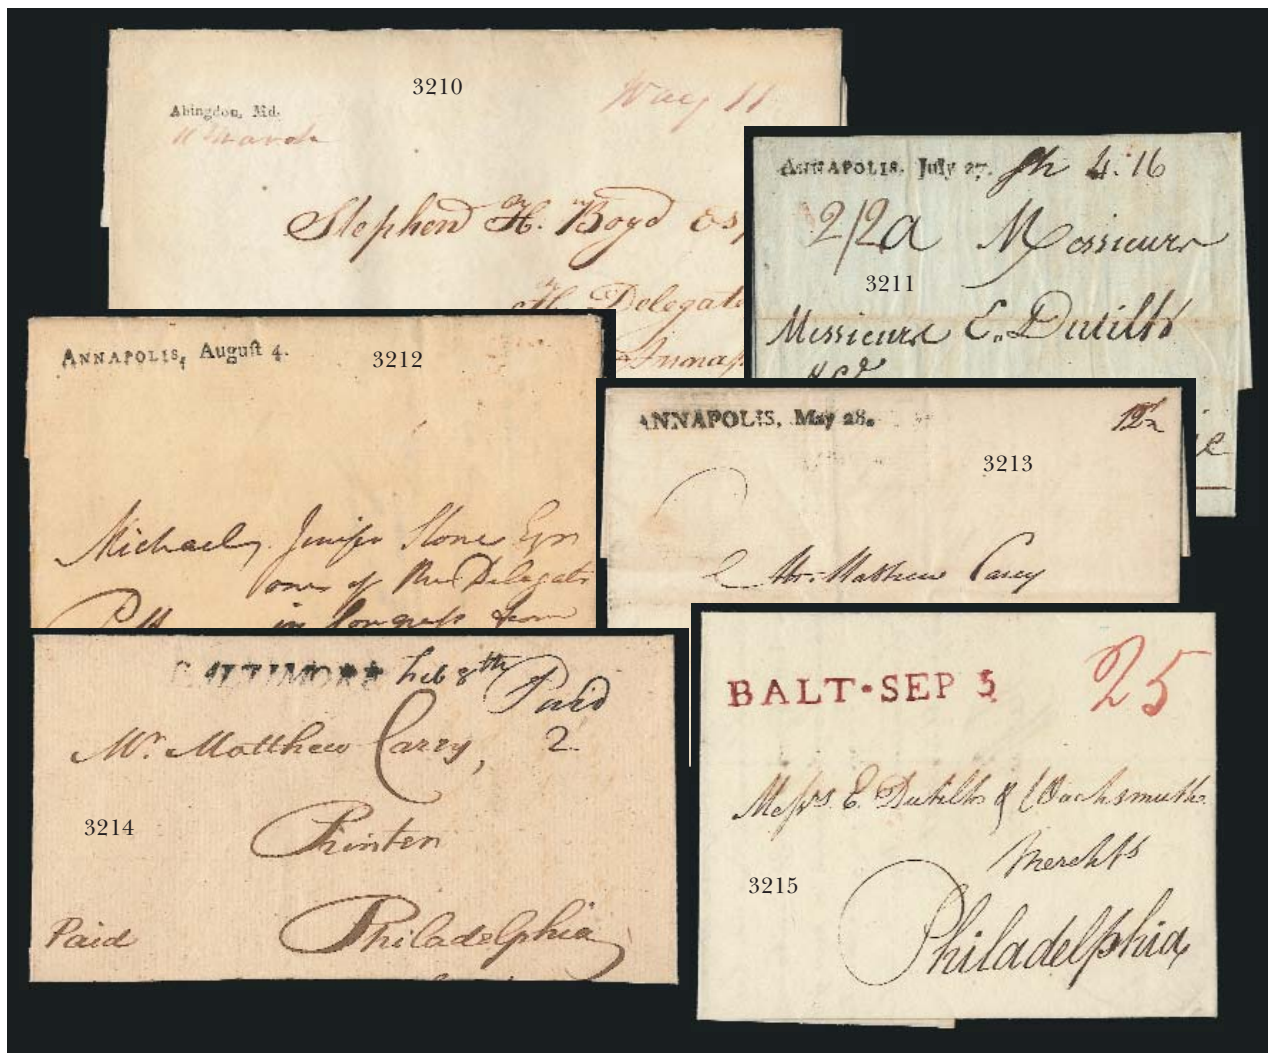 3210
Abingdon, Md.
11 March
Way 11
Stephen H. Boyd Es
H. Delegate
Annap
ANNAPOLIS, July 27. Sh 4:16
2/2a Messieurs
3211
Messieurs E. Dutilh
& Co
ANNAPOLIS, August 4.
3212
Michael Jenifer Stone Esqr
one of the Delegate
in Congress from
ANNAPOLIS, May 28.
12½
3213
Mr. Mathew Carey
BALTIMORE Feb 8th
Paid
2
Mr. Matthew Carey,
3214
Printer
Paid
Philadelphia
BALT•SEP 5
25
Messrs. E. Dutilh & Wachsmuth
Merchts
3215
Philadelphia